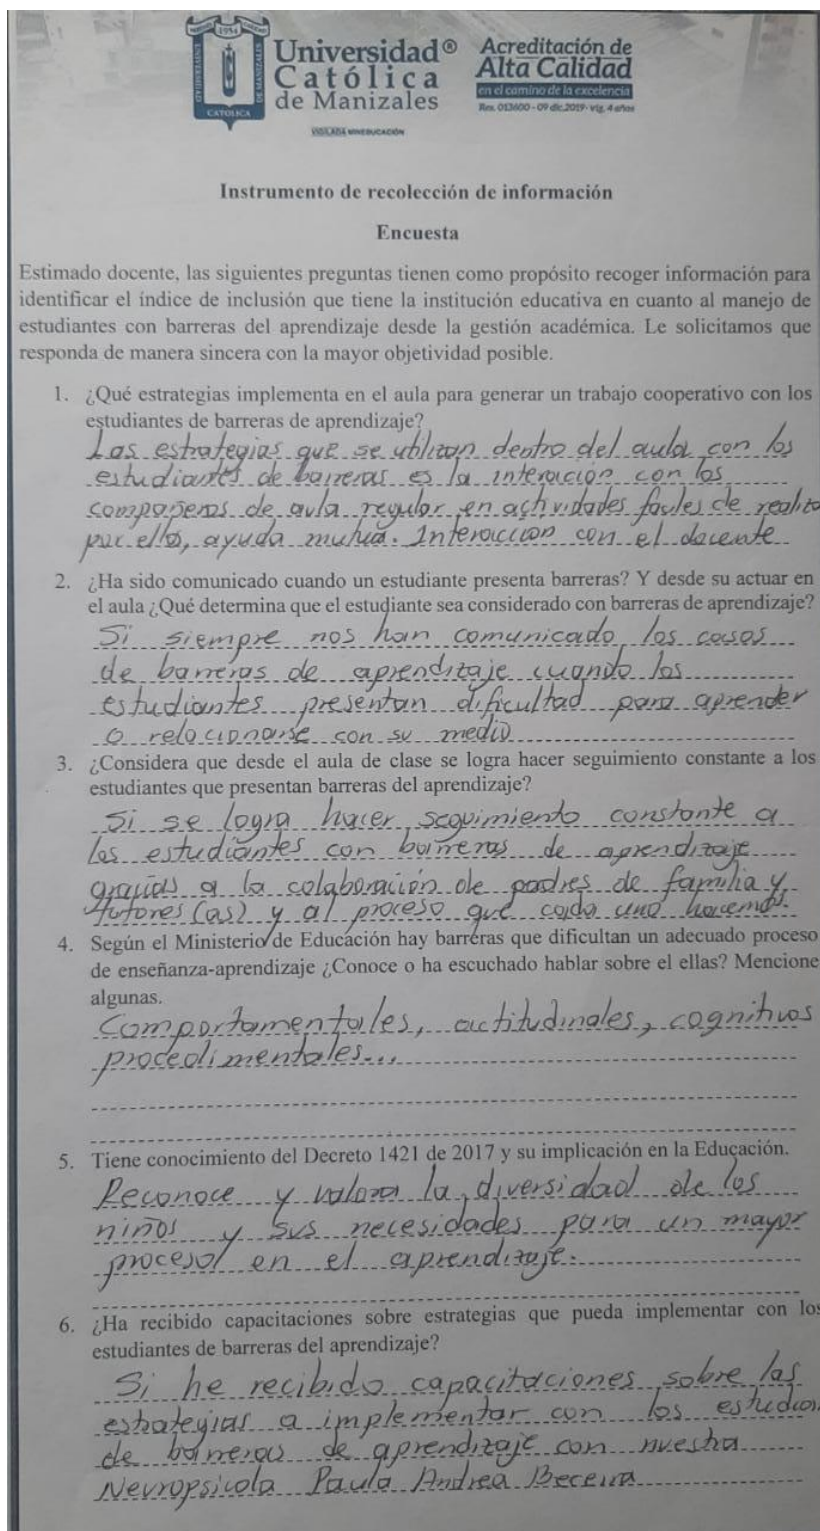 1954
UNIVERSIDAD
CATOLICA
DE MANIZALES
Universidad®
Católica
de Manizales
VIGILADA MINEDUCACIÓN
Acreditación de
Alta Calidad
en el camino de la excelencia
Res. 013600 - 09 dic.2019- vig. 4 años
Instrumento de recolección de información
Encuesta
Estimado docente, las siguientes preguntas tienen como propósito recoger información para
identificar el índice de inclusión que tiene la institución educativa en cuanto al manejo de
estudiantes con barreras del aprendizaje desde la gestión académica. Le solicitamos que
responda de manera sincera con la mayor objetividad posible.
1. ¿Qué estrategias implementa en el aula para generar un trabajo cooperativo con los
estudiantes de barreras de aprendizaje?
Las estrategias que se utilizan dentro del aula con los
estudiantes de barreras es la interacion con los
compañeros de aula regular en actividades faciles de realiza
por ellos, ayuda mutua. Interaccion con el docente
2. ¿Ha sido comunicado cuando un estudiante presenta barreras? Y desde su actuar en
el aula ¿Qué determina que el estudiante sea considerado con barreras de aprendizaje?
Si siempre nos han comunicado los casos
de barreras de aprendizaje cuando los
estudiantes presentan dificultad para aprender
o relacionarse con su medio
3. ¿Considera que desde el aula de clase se logra hacer seguimiento constante a los
estudiantes que presentan barreras del aprendizaje?
Si se logra hacer seguimiento constante a
los estudiantes con barreras de aprendizaje
gracias a la colaboración de padres de familia y
tutores (as) y al proceso que cada uno hacemos.
4. Según el Ministerio de Educación hay barreras que dificultan un adecuado proceso
de enseñanza-aprendizaje ¿Conoce o ha escuchado hablar sobre el ellas? Mencione
algunas.
Comportamentales, actitudinales, cognitivos
procedimentales...
5. Tiene conocimiento del Decreto 1421 de 2017 y su implicación en la Educación.
Reconoce y valora la diversidad de los
niños y sus necesidades para un mayor
proceso en el aprendizaje.
6. ¿Ha recibido capacitaciones sobre estrategias que pueda implementar con los
estudiantes de barreras del aprendizaje?
Si he recibido capacitaciones sobre las
estrategias a implementar con los estudian
de barreras de aprendizaje con nuestra
Neuropsicola Paula Andrea Becerra